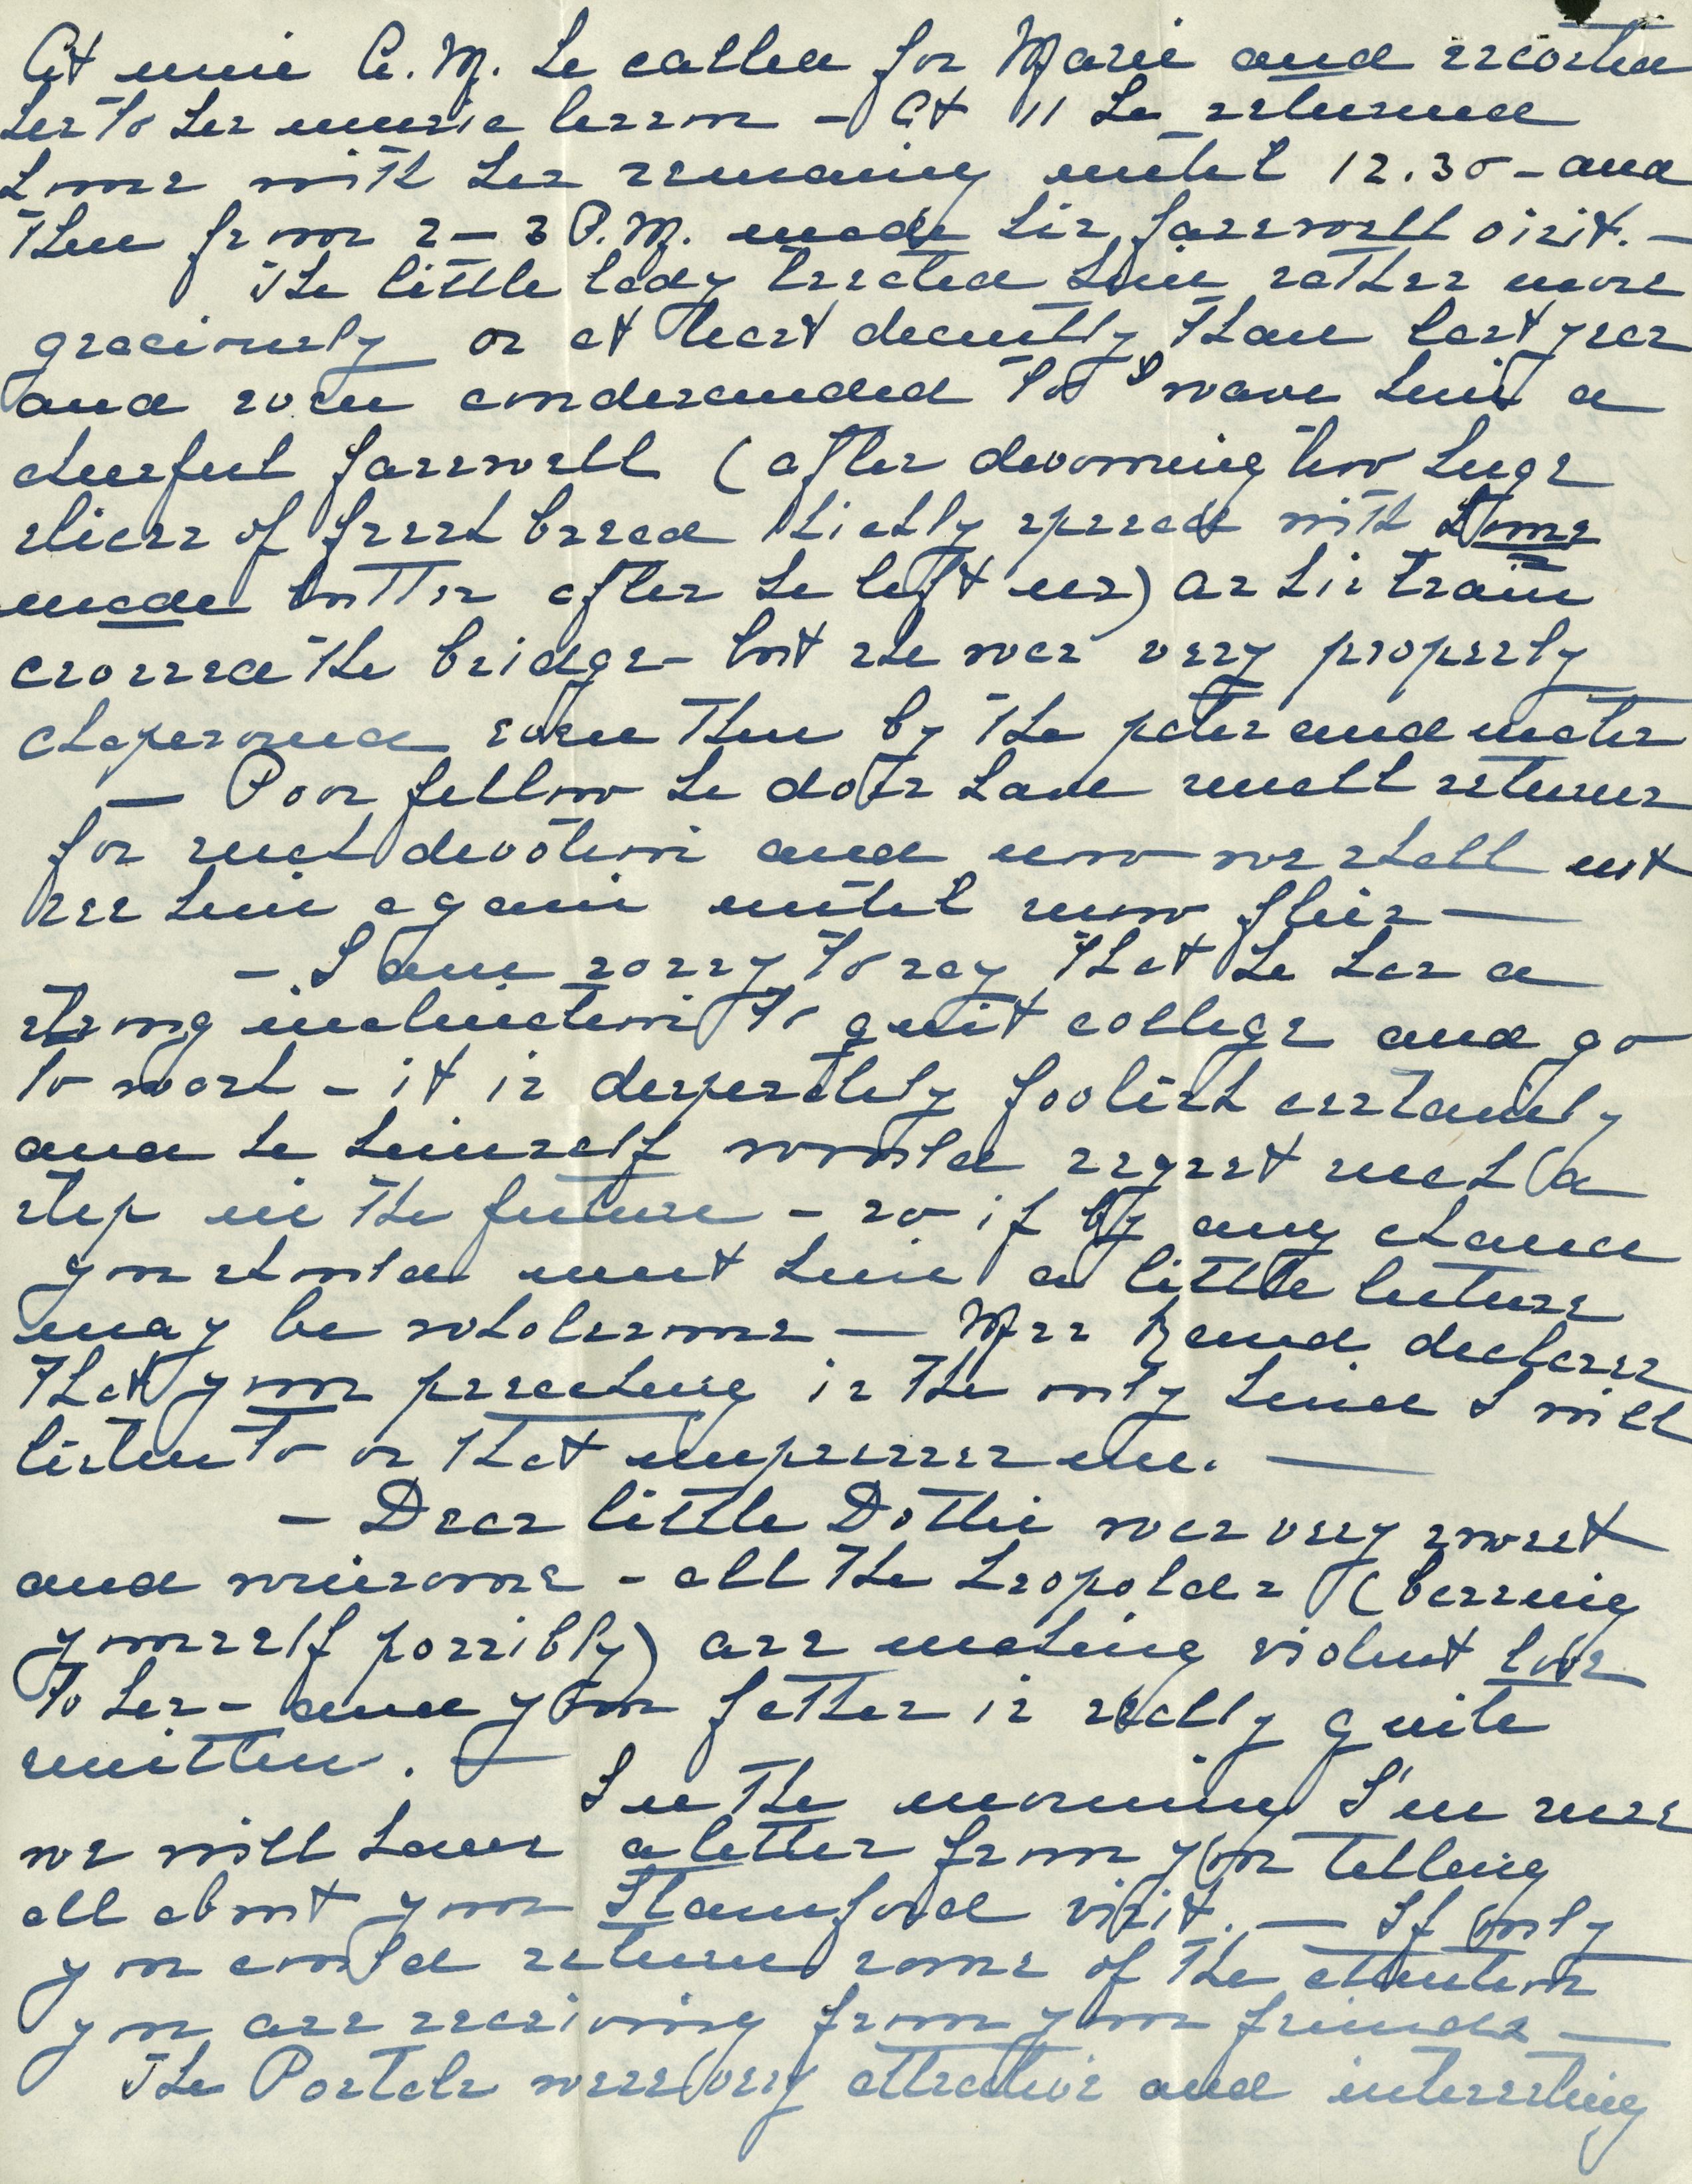 At nine A.M. he called for Marie and escorted
her to her music lesson - At 11 he returned
home with her remaining until 12.30 - and
then from 2 - 3 P.M. made his farewell visit. -
The little lady treated him rather more
graciously or at least decently than last year
and even condescended to wave him a
cheerful farewell (after devouring two huge
slices of fresh bread thickly spread with home
made butter after he left us) as his train
crossed the bridge - but she was very properly
chaperoned even then by the pater and mater
- Poor fellow he does have small returns
for such devotion and now we shall not
see him again until snow flies -
- I am sorry to say that he has a
strong inclination to quit college and go
to work - it is desperately foolish certainly
and he himself would regret such a
step in the future - so if by any chance
you should meet him a little lecture
may be wholesome - Mrs Rand declares
that your preaching is the only kind I will
listen to or that impresses me. -
- Dear little Dottie was very sweet
and winsome - all the Leopolds (barring
yourself possibly) are making violent love
to her - and your father is really quite
smitten. -
In the morning I'm sure
we will have a letter from you telling
all about your Stamford visit. - If only
you could return some of the attention
you are receiving from your friends -
The Postals were very attractive and interesting